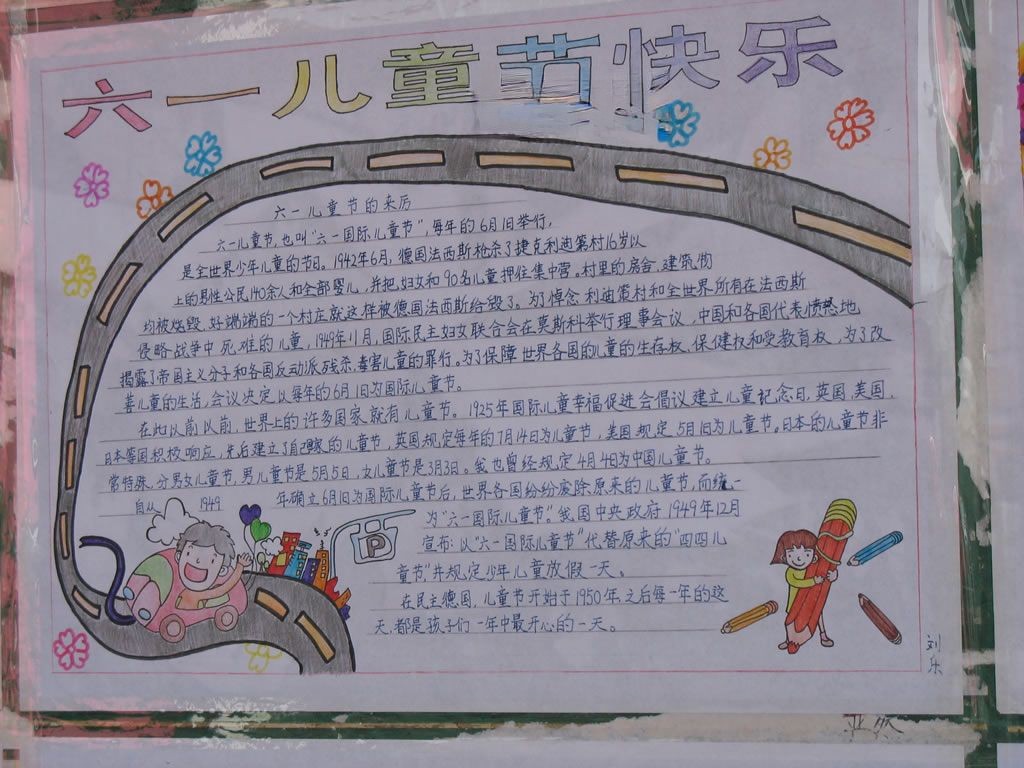 六一儿童节快乐
六一儿童节的来历
六一儿童节,也叫"六一国际儿童节",每年的6月1日举行,
是全世界少年儿童的节日。1942年6月,德国法西斯枪杀了捷克利迪策村16岁以
上的男性公民140余人和全部婴儿,并把妇女和90名儿童押往集中营。村里的房舍、建筑物
均被烧毁,好端端的一个村庄就这样被德国法西斯给毁了。为了悼念利迪策村和全世界所有在法西斯
侵略战争中死难的儿童,1949年11月,国际民主妇女联合会在莫斯科举行理事会议,中国和各国代表愤怒地
揭露了帝国主义分子和各国反动派残杀、毒害儿童的罪行。为了保障世界各国的儿童的生存权、保健权和受教育权,为了改
善儿童的生活,会议决定以每年的6月1日为国际儿童节。
在此以前以前,世界上的许多国家就有儿童节。1925年国际儿童幸福促进会倡议建立儿童纪念日,英国、美国、
日本等国积极响应,先后建立了自己国家的儿童节,英国规定每年的7月14日为儿童节,美国规定5月1日为儿童节。日本的儿童节非
常特殊,分男女儿童节,男儿童节是5月5日,女儿童节是3月3日。我也曾经规定4月4日为中国儿童节。
自从 1949 年确立6月1日为国际儿童节后,世界各国纷纷废除原来的儿童节,而统一
为"六一国际儿童节"。我国中央政府1949年12月
宣布:以"六一国际儿童节"代替原来的"四四儿
童节",并规定少年儿童放假一天。
在民主德国,儿童节开始于1950年,之后每一年的这
天,都是孩子们一年中最开心的一天。
P
刘乐